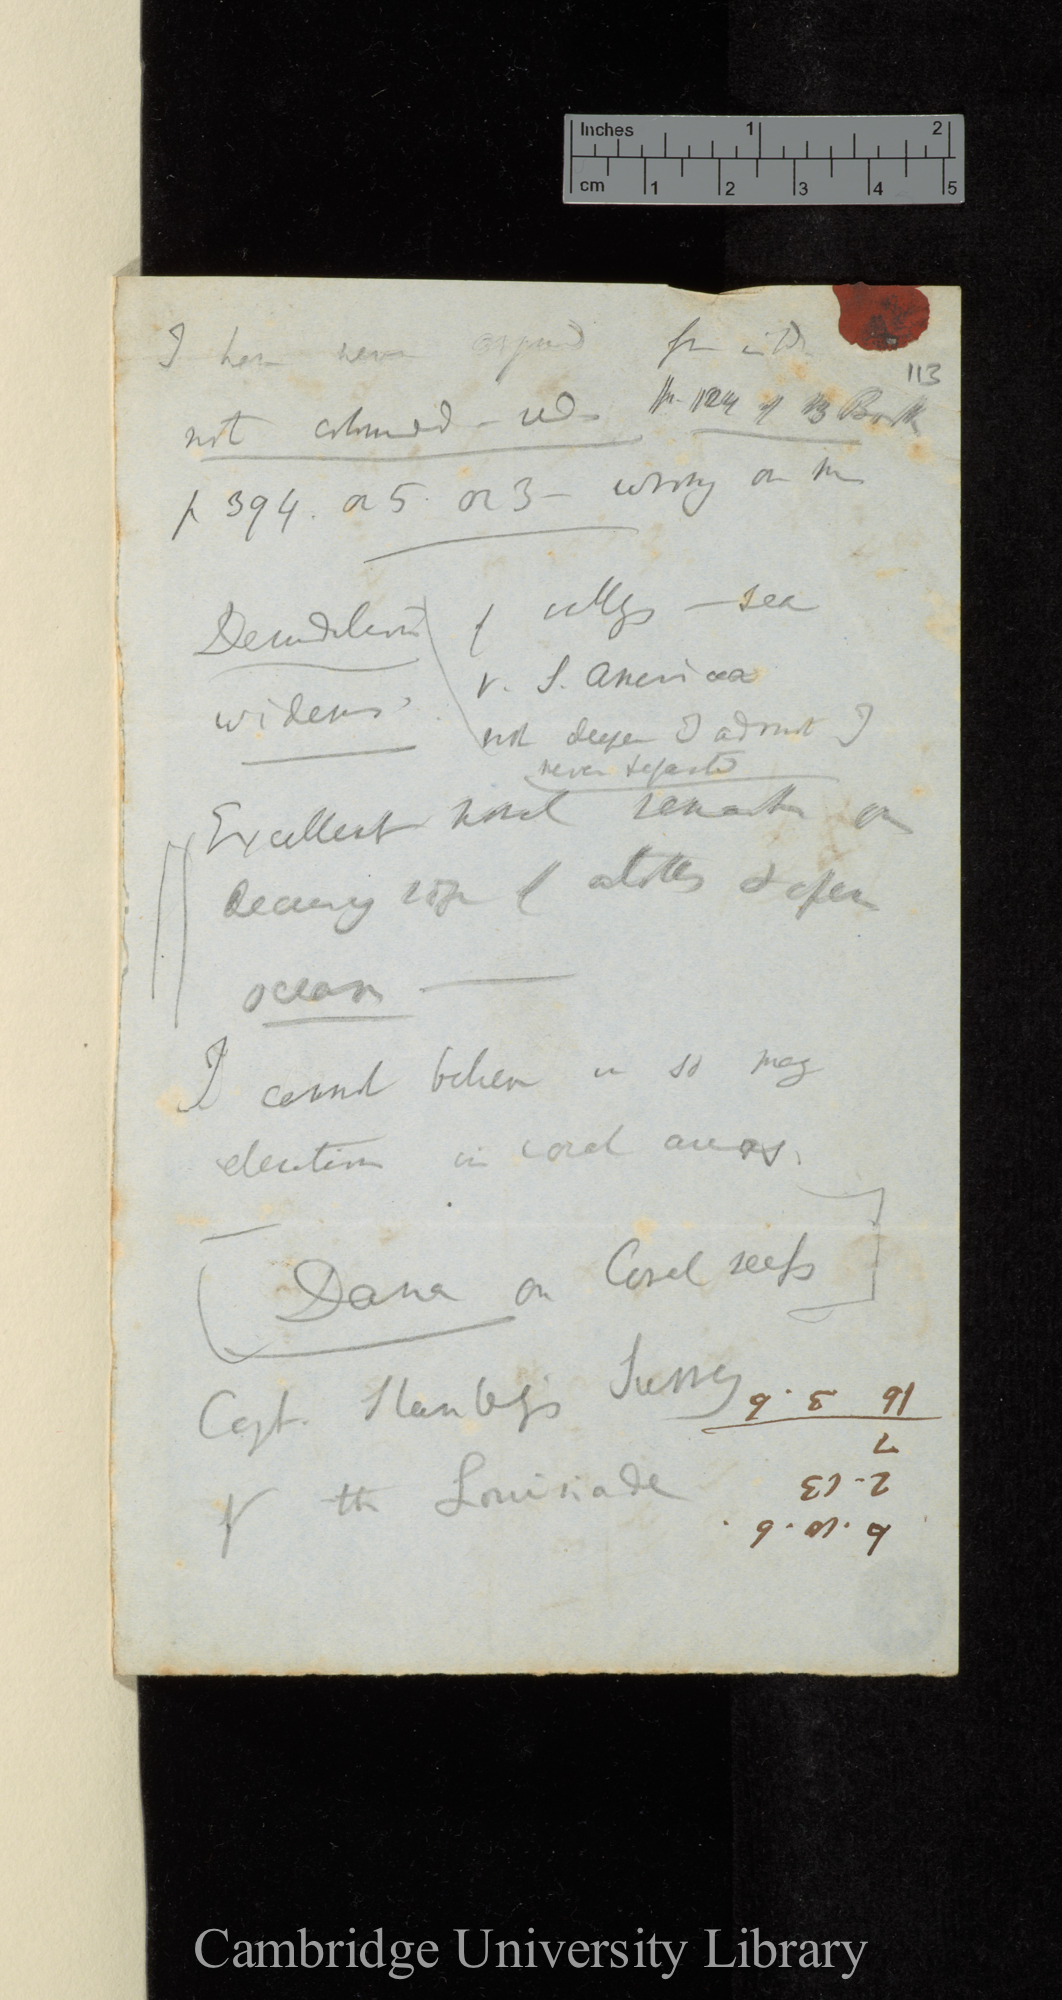 Inches 1 2
cm 1 2 3 4 5
113
I have never argued from
not coloured - red -
p 394. or 5. or 3 - wrong on
Denudation of valleys - sea
widens v. S. America
not deeper I admit I
never
Excellent novel remarks on
of atolls & open
ocean
I cannot believe in so many
elevation in coral areas.
Dana on Coral reefs
Capt. Stanley's Survey
of the Louisiade
6.10.6
2-13
7
16 3.6
Cambridge University Library